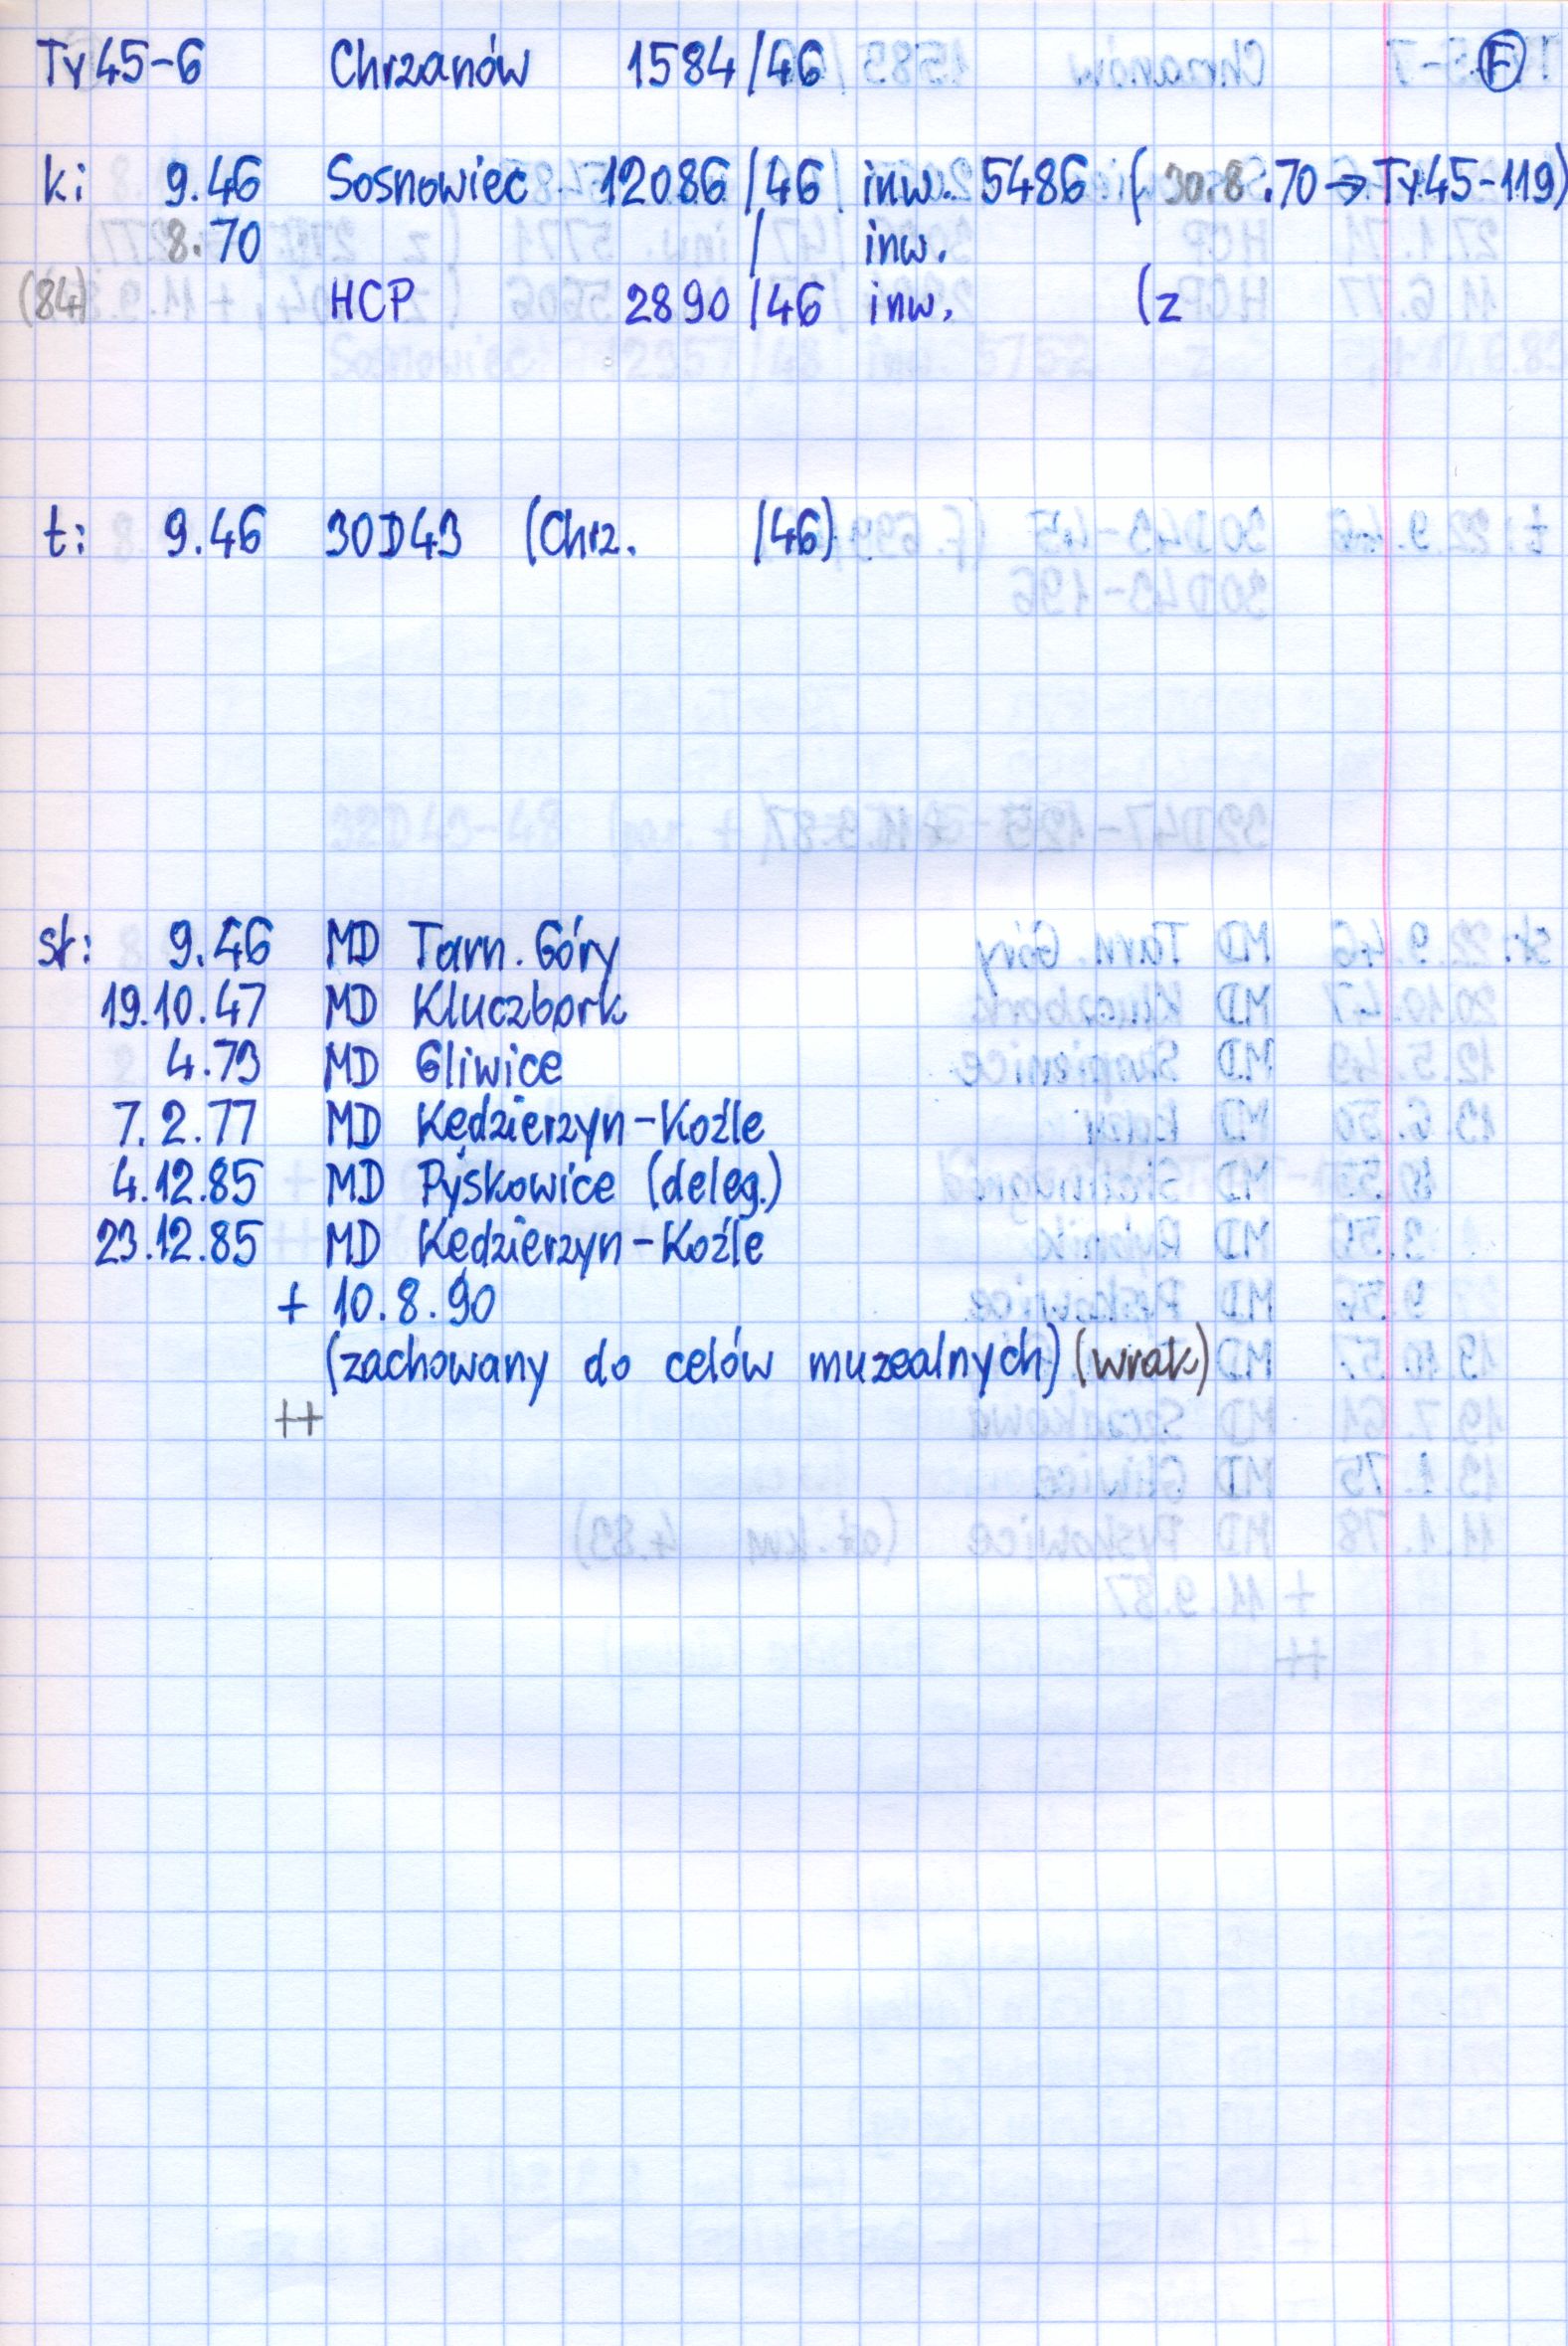 Ty45-6 Chrzanów 1584/46 F
k: 9.46 Sosnowiec 12086/46 inw. 5486 (30.8.70→Ty45-119)
8.70 / inw.
(84) HCP 2890/46 inw. (z
t: 9.46 30D43 (Chrz. /46)
st: 9.46 MD Tarn. Góry
19.10.47 MD Kluczbork
4.73 MD Gliwice
7.2.77 MD Kędzierzyn-Koźle
4.12.85 MD Pyskowice (deleg.)
23.12.85 MD Kędzierzyn-Koźle
+ 10.8.90
(zachowany do celów muzealnych) (wrak)
++